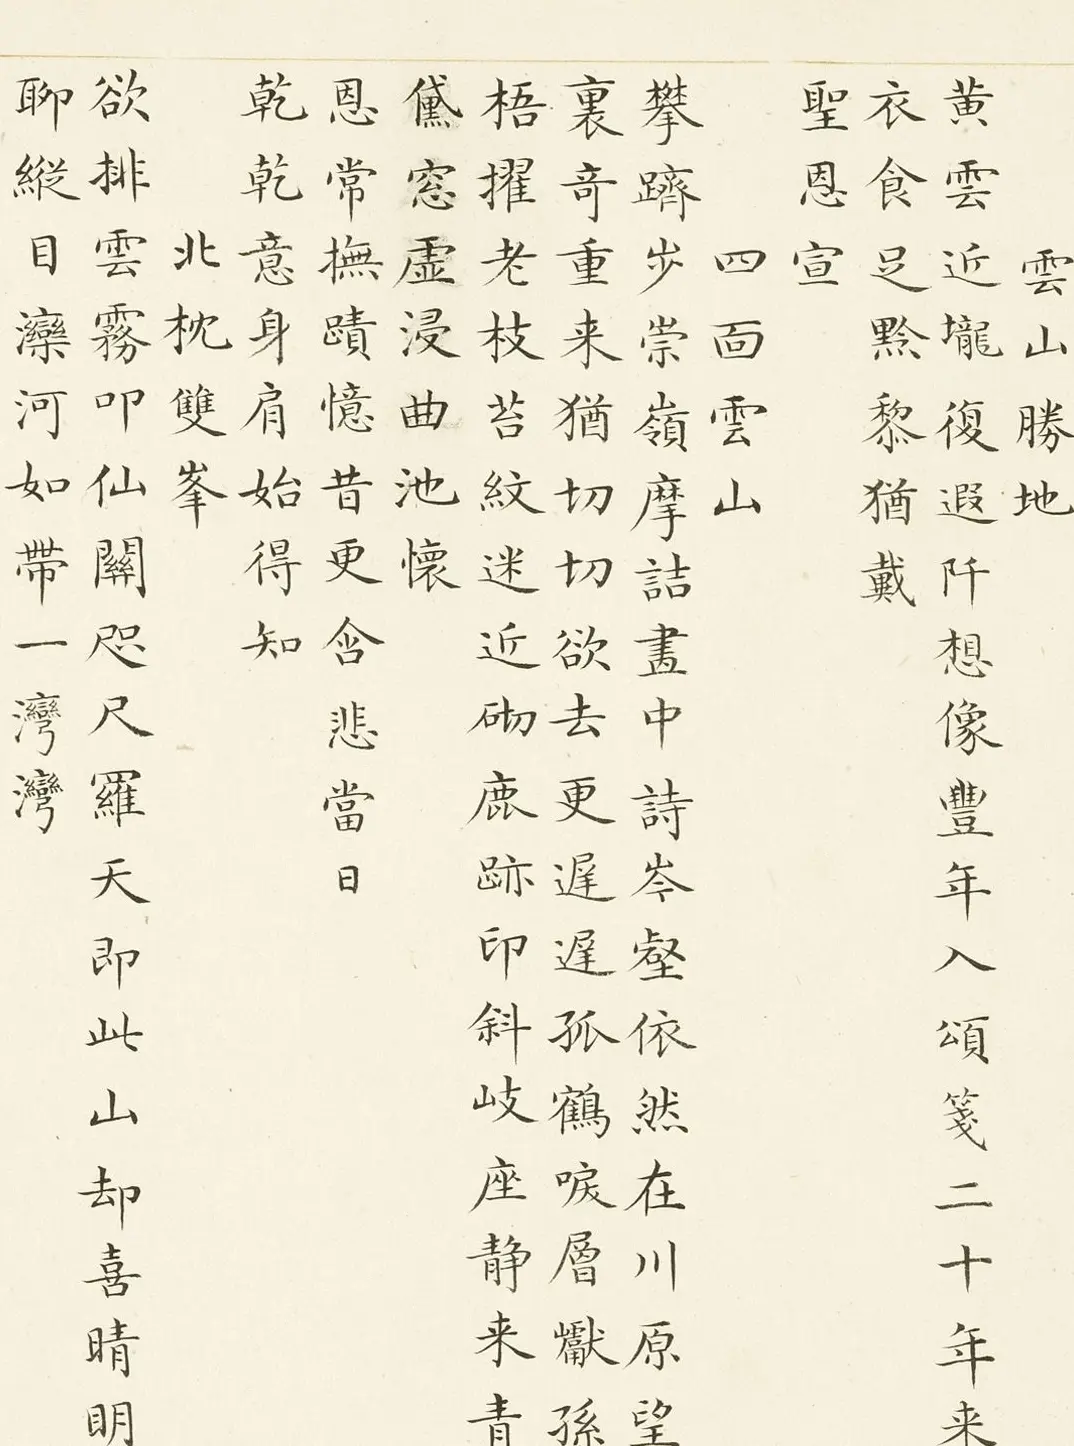 雲山勝地
黄雲近壠復遐阡想像豐年入頌箋二十年来
衣食足黔黎猶戴
聖恩宣
四面雲山
攀躋步崇嶺摩詰畫中詩岑壑依然在川原望
裏奇重来猶切切欲去更遲遲孤鶴唳層巘孫
梧擢老枝苔紋迷近砌鹿跡印斜岐座静来青
黛窓虚浸曲池懷
恩常撫蹟憶昔更含悲當日
乾乾意身肩始得知
北枕雙峯
欲排雲霧叩仙關咫尺羅天即此山却喜晴明
聊縱目灤河如帶一灣灣